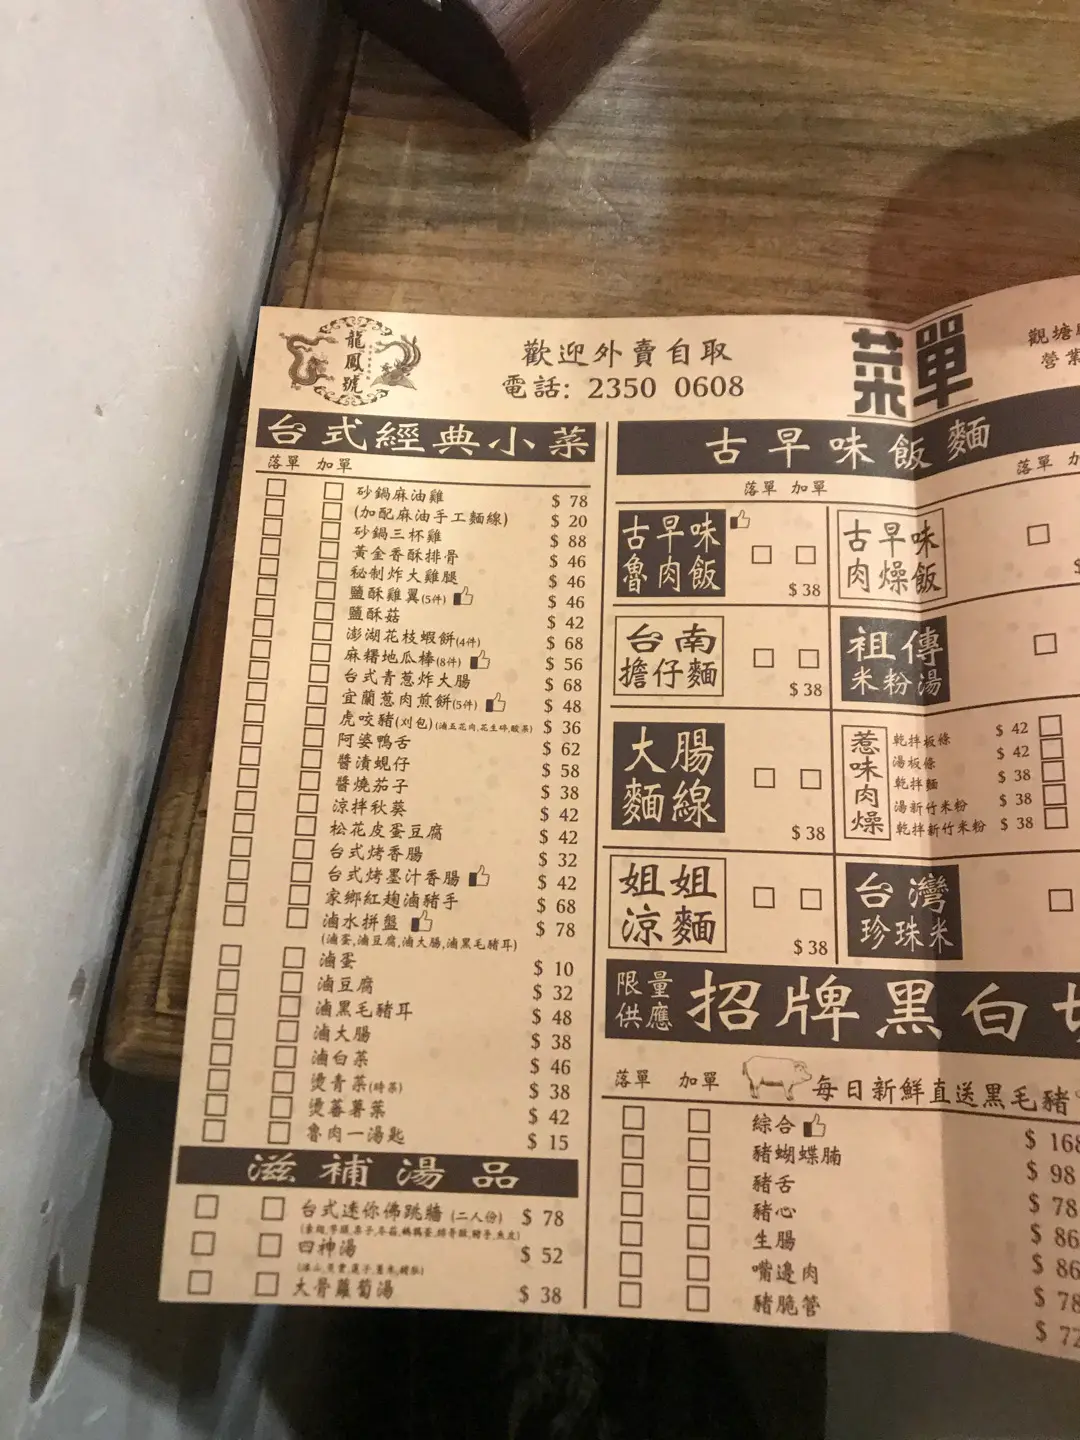 龍鳳號
歡迎外賣自取
電話: 2350 0608
菜單
觀塘
營業
台式經典小菜
落單 加單
砂鍋麻油雞 $ 78
(加配麻油手工麵線) $ 20
砂鍋三杯雞 $ 88
黃金香酥排骨 $ 46
秘制炸大雞腿 $ 46
鹽酥雞翼(5件) $ 46
鹽酥菇 $ 42
澎湖花枝蝦餅(4件) $ 68
麻糬地瓜棒(8件) $ 56
台式青蔥炸大腸 $ 68
宜蘭蔥肉煎餅(5件) $ 48
虎咬豬(刈包)(滷五花肉,花生碎,酸菜) $ 36
阿婆鴨舌 $ 62
醬漬蜆仔 $ 58
醬燒茄子 $ 38
涼拌秋葵 $ 42
松花皮蛋豆腐 $ 42
台式烤香腸 $ 32
台式烤墨汁香腸 $ 42
家鄉紅麴滷豬手 $ 68
滷水拼盤 $ 78
(滷蛋,滷豆腐,滷大腸,滷黑毛豬耳)
滷蛋 $ 10
滷豆腐 $ 32
滷黑毛豬耳 $ 48
滷大腸 $ 38
滷白菜 $ 46
燙青菜(時菜) $ 38
燙蕃薯葉 $ 42
魯肉一湯匙 $ 15
滋補湯品
台式迷你佛跳牆 (二人份) $ 78
四神湯 $ 52
大骨蘿蔔湯 $ 38
古早味飯麵
落單 加單
落單 加
古早味
魯肉飯
$ 38
古早味
肉燥飯
$
台南
擔仔麵
$ 38
祖傳
米粉湯
大腸
麵線
$ 38
惹味肉燥
乾拌板條 $ 42
湯板條 $ 42
乾拌麵 $ 38
湯新竹米粉 $ 38
乾拌新竹米粉 $ 38
姐姐
涼麵
$ 38
台灣
珍珠米
限量
供應
招牌黑白切
落單 加單
每日新鮮直送黑毛豬
綜合 $ 168
豬蝴蝶腩 $ 98
豬舌 $ 78
豬心 $ 86
生腸 $ 86
嘴邊肉 $ 78
豬脆管 $ 72